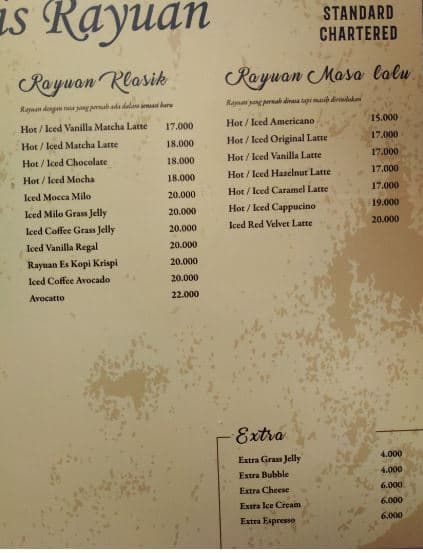 is Rayuan
STANDARD
CHARTERED
Rayuan Klasik
Rayuan dengan rasa yang pernah ada dalam sensasi baru
Hot / Iced Vanilla Matcha Latte 17.000
Hot / Iced Matcha Latte 18.000
Hot / Iced Chocolate 18.000
Hot / Iced Mocha 18.000
Iced Mocca Milo 20.000
Iced Milo Grass Jelly 20.000
Iced Coffee Grass Jelly 20.000
Iced Vanilla Regal 20.000
Rayuan Es Kopi Krispi 20.000
Iced Coffee Avocado 20.000
Avocatto 22.000
Rayuan Masa lalu
Rayuan yang pernah dirasa tapi masih dirindukan
Hot / Iced Americano 15.000
Hot / Iced Original Latte 17.000
Hot / Iced Vanilla Latte 17.000
Hot / Iced Hazelnut Latte 17.000
Hot / Iced Caramel Latte 17.000
Hot / Iced Cappucino 19.000
Iced Red Velvet Latte 20.000
Extra
Extra Grass Jelly 4.000
Extra Bubble 4.000
Extra Cheese 6.000
Extra Ice Cream 6.000
Extra Espresso 6.000